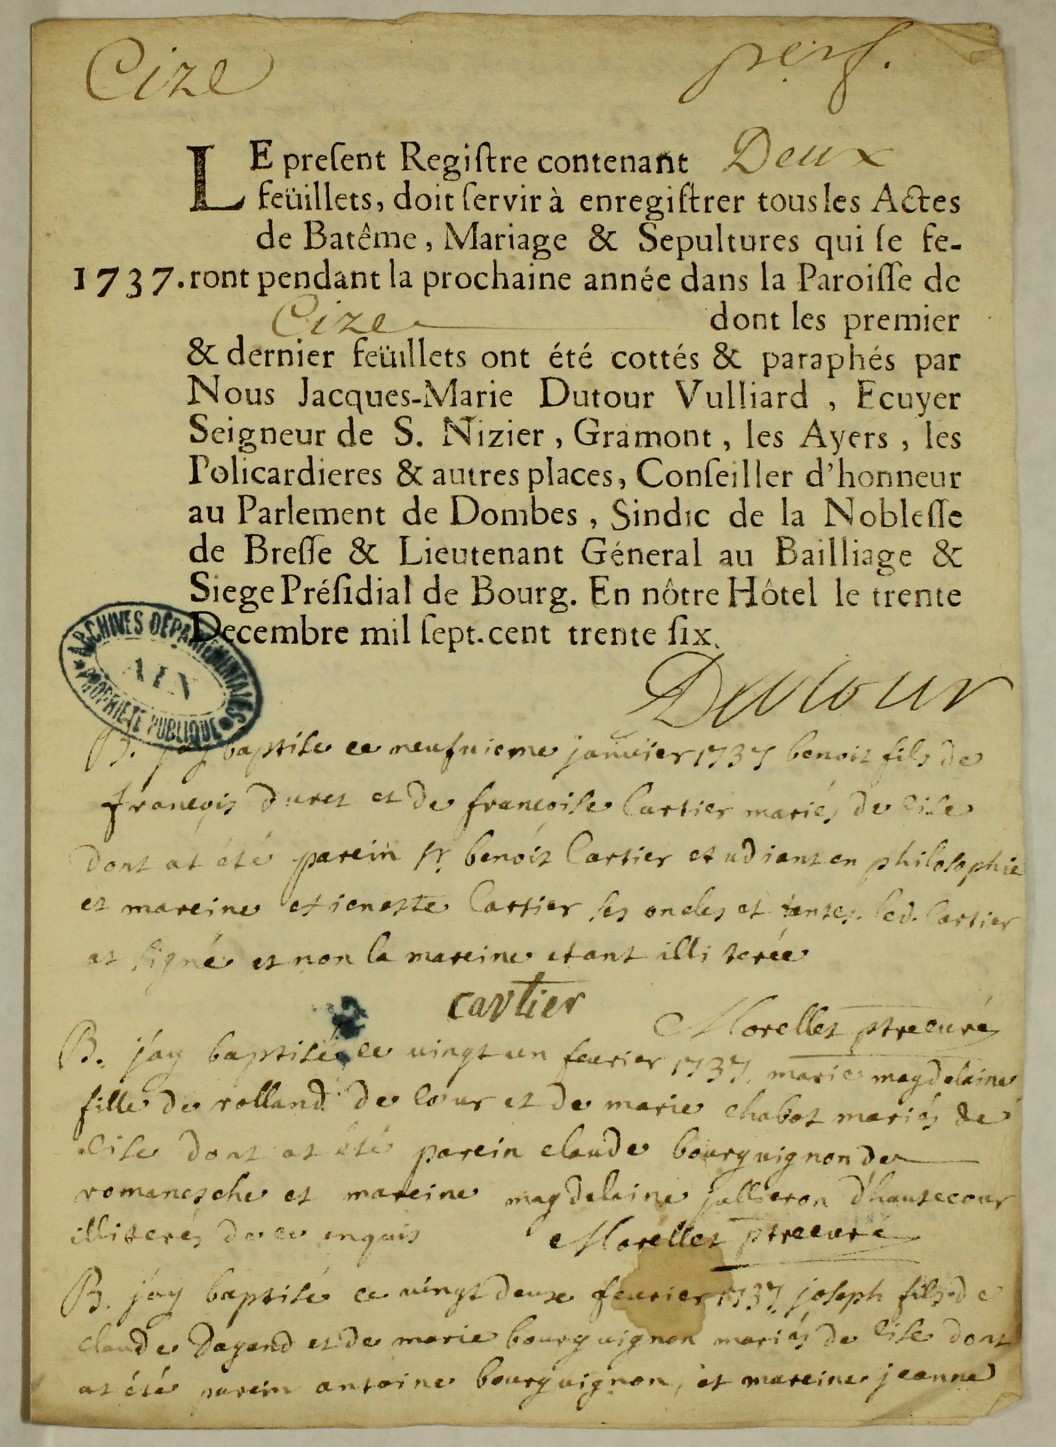 Cize
LE preſent Regiſtre contenant Deux
feüillets, doit ſervir à enregiſtrer tous les Actes
de Batême, Mariage & Sepultures qui ſe fe-
1737. ront pendant la prochaine année dans la Paroiſſe de
Cize dont les premier
& dernier feüillets ont été cottés & paraphés par
Nous Jacques-Marie Dutour Vulliard, Ecuyer
Seigneur de S. Nizier, Gramont, les Ayers, les
Policardieres & autres places, Conſeiller d'honneur
au Parlement de Dombes, Sindic de la Nobleſſe
de Breſſe & Lieutenant Géneral au Bailliage &
Siege Préſidial de Bourg. En nôtre Hôtel le trente
Decembre mil ſept-cent trente ſix.
ARCHIVES DÉPARTEMENTALES
AIN
PROPRIÉTÉ PUBLIQUE
Dutour
B. j'ay baptise ce neufuieme januier 1737 benoit fils de
françois duret et de francoise Cartier mariés de Cise
dont at été parein sr. benoit Cartier etudiant en philosophie
et mareine etienette Cartier ses oncles et tantes. led. Cartier
at signé et non la mareine etant illiterée
cartier
Morellet ptre curé
B. j'ay baptisé ce uingt un feurier 1737. marie magdelaine
fille de rolland de Cour et de marie chabot mariés de
Cise dont at été parein claude bourguignon de
romanesche et mareine magdelaine jallieron d'hautecour
illiterés de ce enquis Morellet ptre curé
B. j'ay baptisé ce uingt deux feurier 1737 joseph fils de
claude Dagand et de marie bourguignon mariés de Cise dont
at été parein antoine bourguignon, et mareine jeanne